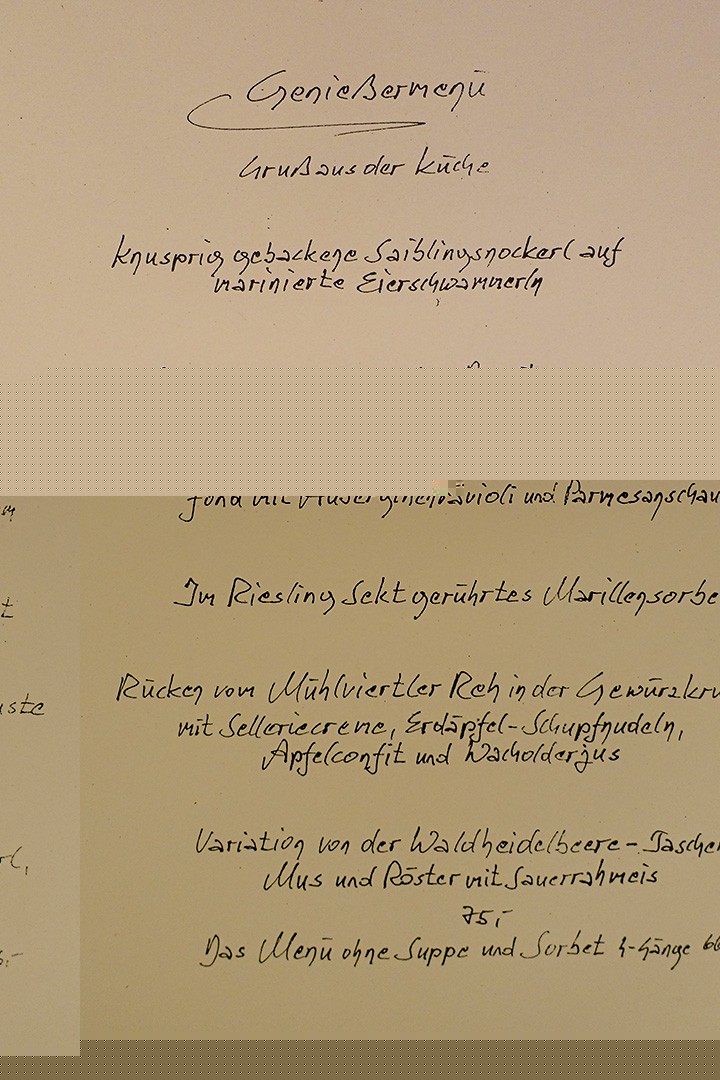 Genießermenü
Gruß aus der Küche
Knusprig gebackene Saiblingsnockerl auf
marinierte Eierschwammerln
fond mit Auberginenravioli und Parmesanschau
Im Riesling Sekt gerührtes Marillensorbe
Rücken vom Mühlviertler Reh in der Gewürzkru
mit Selleriecreme, Erdäpfel-Schupfnudeln,
uste
Apfelconfit und Wacholderjus
Variation von der Waldheidelbeere - Tascher
rl,
Mus und Röster mit Sauerrahmeis
75,-
Das Menü ohne Suppe und Sorbet 4-Gänge 66